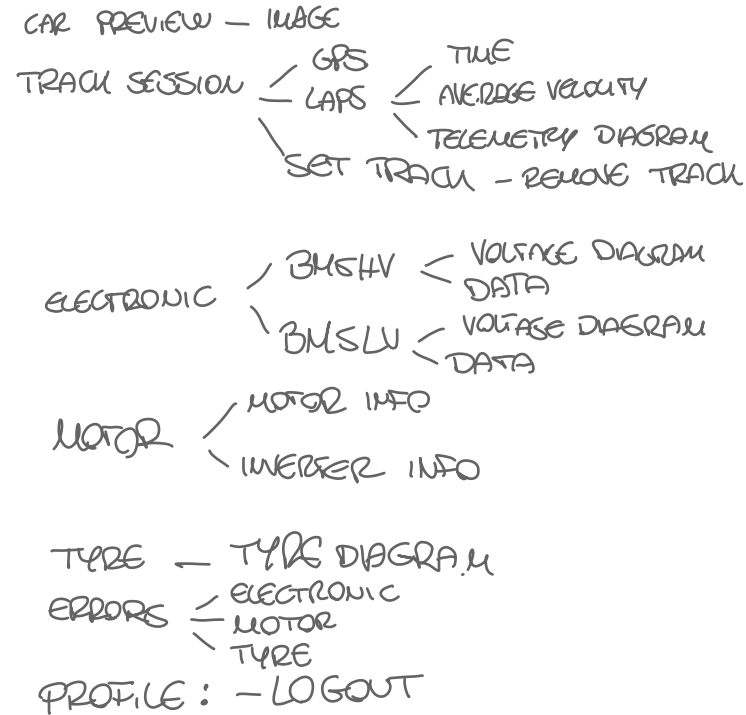 CAR PREVIEW — IMAGE
GPS
TRACK SESSION
LAPS
TIME
AVERAGE VELOCITY
TELEMETRY DIAGRAM
SET TRACK - REMOVE TRACK
ELECTRONIC
BMSHV
VOLTAGE DIAGRAM
DATA
BMSLV
VOLTAGE DIAGRAM
DATA
MOTOR
MOTOR INFO
INVERTER INFO
TYRE — TYRE DIAGRAM
ERRORS
ELECTRONIC
MOTOR
TYRE
PROFILE: - LOGOUT